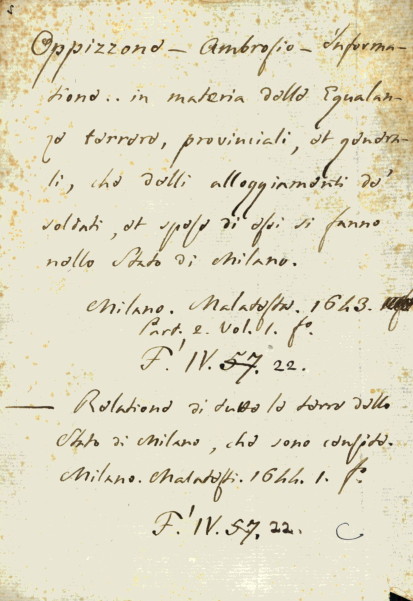 Oppizzone - Ambrosio - Informa-
tione.. in materia delle Egualan-
ze terrere, provinciali, et genera-
li, che delli alloggiamenti de'
soldati, et spese di essi si fanno
nello Stato di Milano.
Milano. Malatesta. 1643.
Part. 2. Vol. 1. fo.
F.' IV. 57. 22.
— Relatione di tutte le terre dello
Stato di Milano, che sono censite.
Milano. Malatesti. 1644. 1. fo.
F.' IV. 57. 22.